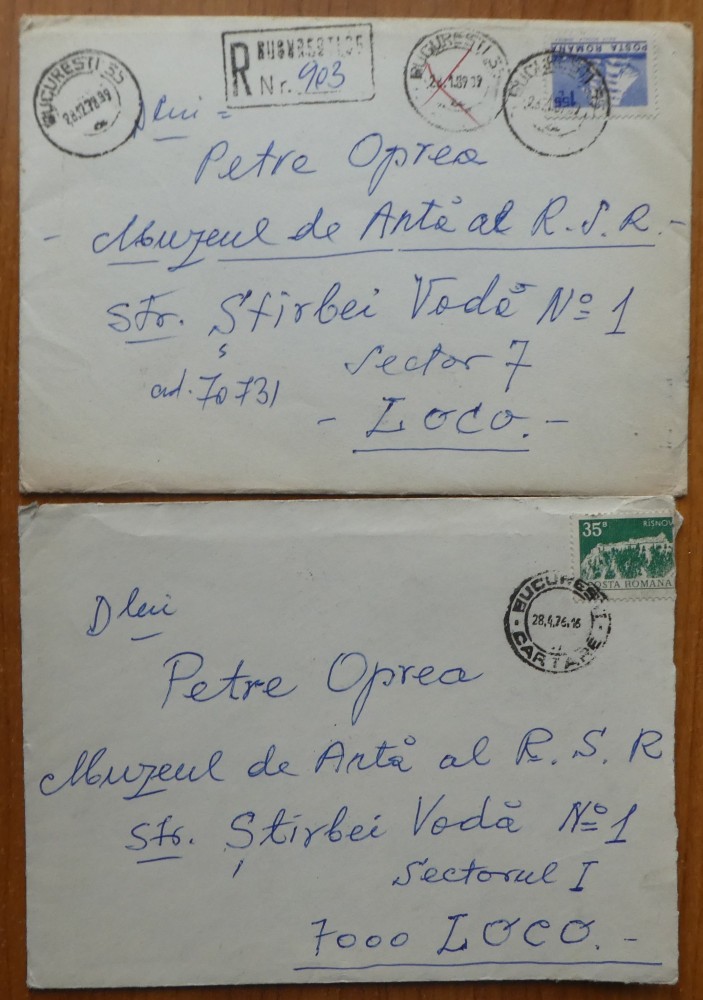 BUCUREȘTI 55
R BUCUREȘTI 55
Nr. 903
BUCUREȘTI 55
POSTA ROMANA
Dlui =
Petre Oprea
- Muzeul de Artă al R.S.R. -
Str. Știrbei Vodă No 1
Sector 7
cod. 70731
- LOCO. -
35B RISNOV
POSTA ROMANA
BUCUREȘTI
28.4.76.16
CARTARE
Dlui
Petre Oprea
Muzeul de Artă al R.S.R
Str. Știrbei Vodă No 1
Sectorul I
7000 LOCO. -